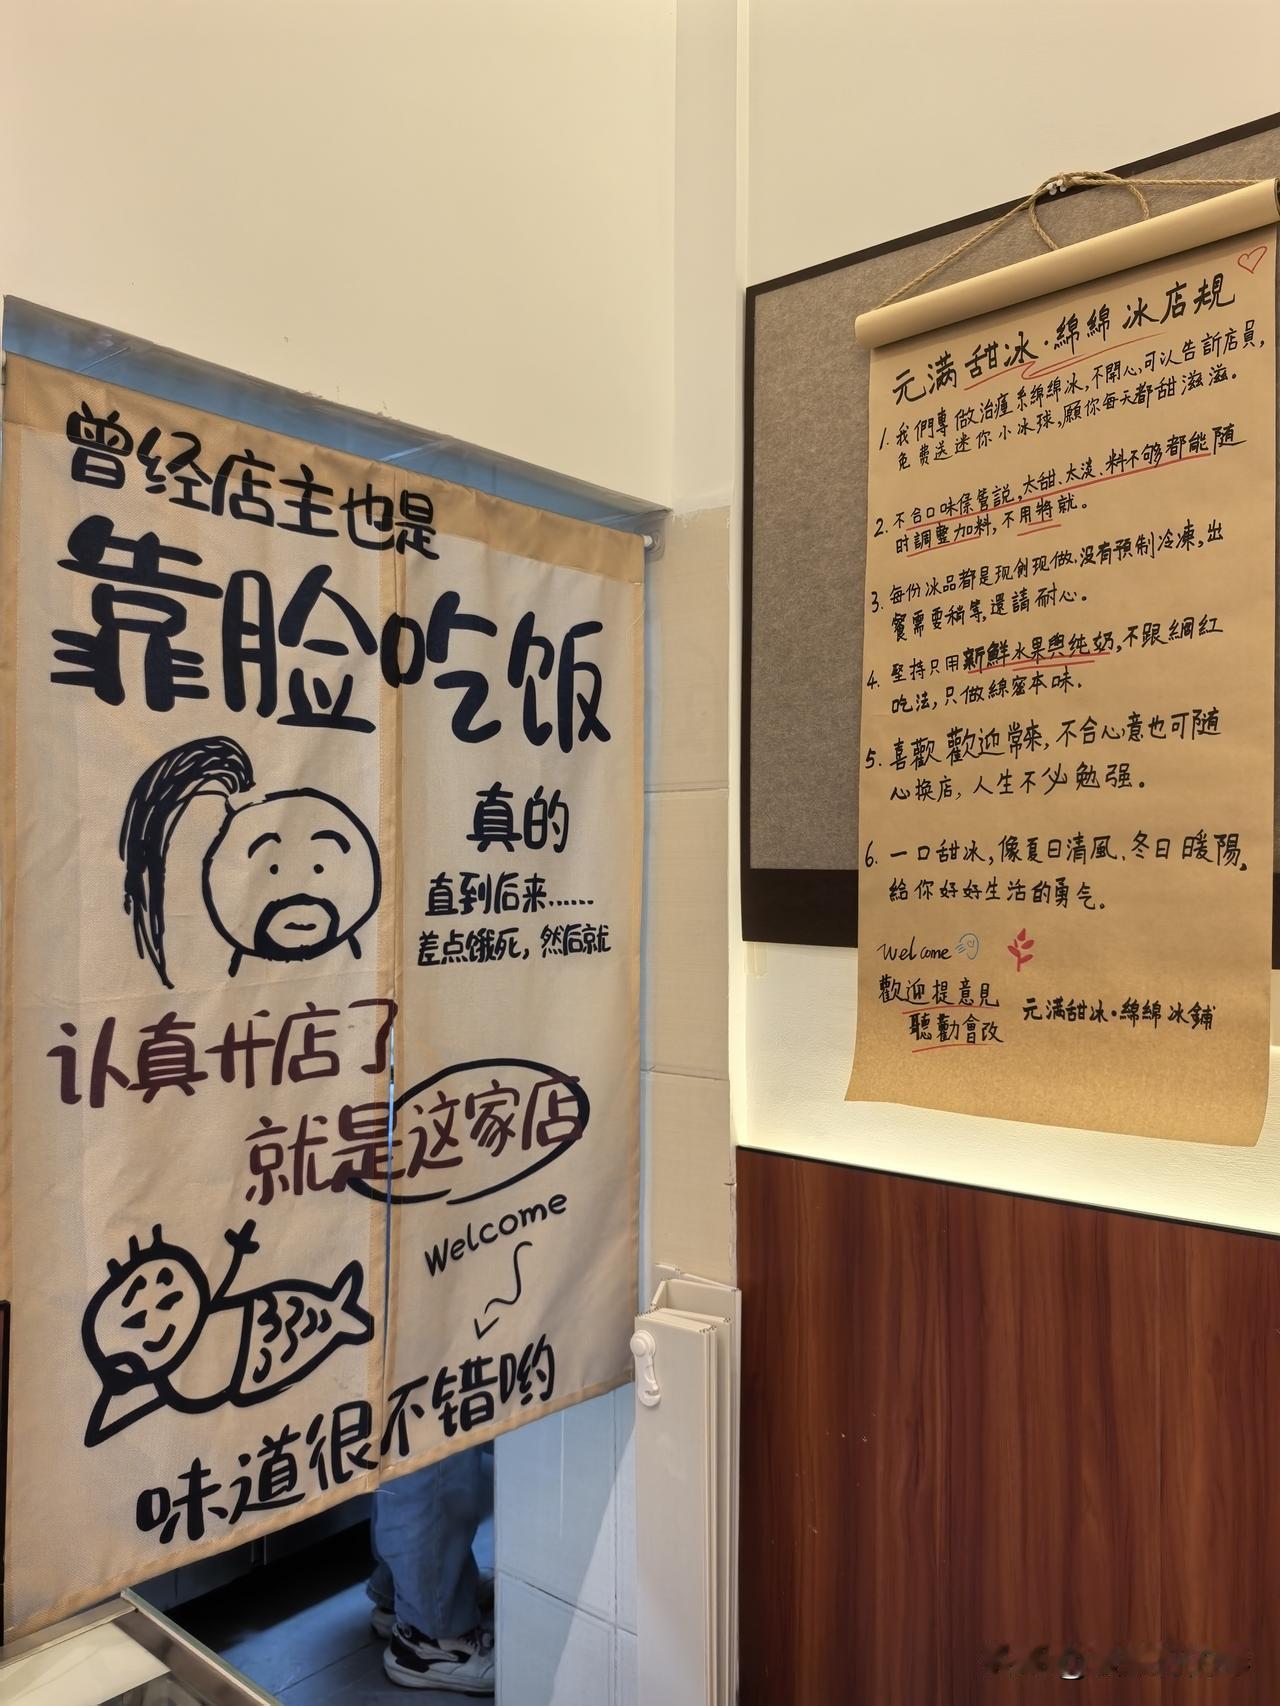 曾经店主也是
靠脸吃饭
真的
直到后来……
差点饿死，然后就
认真开店了
就是这家店
Welcome
味道很不错哟
元满甜冰·綿綿冰店規
1. 我們專做治癒系綿綿冰，不開心，可以告訴店員，
免費送迷你小冰球，願你每天都甜滋滋。
2. 不合口味儘管説，太甜、太淡、料不够都能随
时調整加料，不用將就。
3. 每份冰品都是现刨现做，没有預制冷凍，出
餐需要稍等，還請耐心。
4. 堅持只用新鮮水果與纯奶，不跟網红
吃法，只做綿密本味。
5. 喜歡歡迎常來，不合心意也可随
心换店，人生不必勉强。
6. 一口甜冰，像夏日清風、冬日暖陽，
給你好好生活的勇气。
Welcome
歡迎提意見
聽勸會改
元满甜冰·綿綿冰鋪